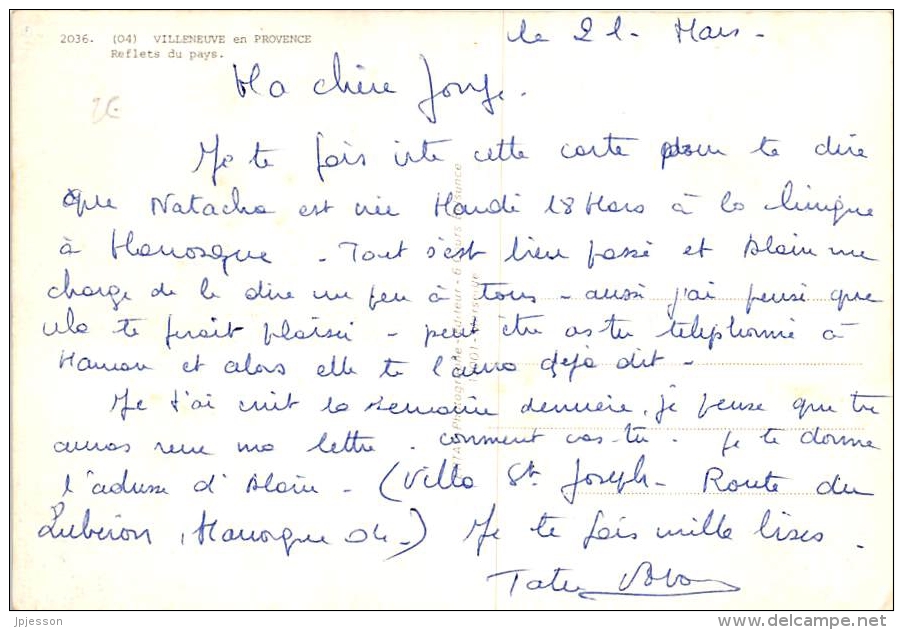 2036. (04) VILLENEUVE en PROVENCE
Reflets du pays.
le 21 - Mars -
Ma chère
Je te fais vite cette carte pour te dire
que Natacha est née Mardi 18 Mars à la clinique
à Manosque - Tout s'est bien passé et Alain me
charge de le dire un peu à tous - aussi j'ai pensé que
cela te ferait plaisir - peut être as-tu téléphoné à
Maman et alors elle te l'aura déjà dit -
Je t'ai écrit la semaine dernière, je pense que tu
auras reçu ma lettre. comment vas-tu. je te donne
l'adresse d'Alain - (Villa St. Joseph - Route du
Luberon, Manosque 04-) Je te fais mille bises -
jpjesson
www.delcampe.net